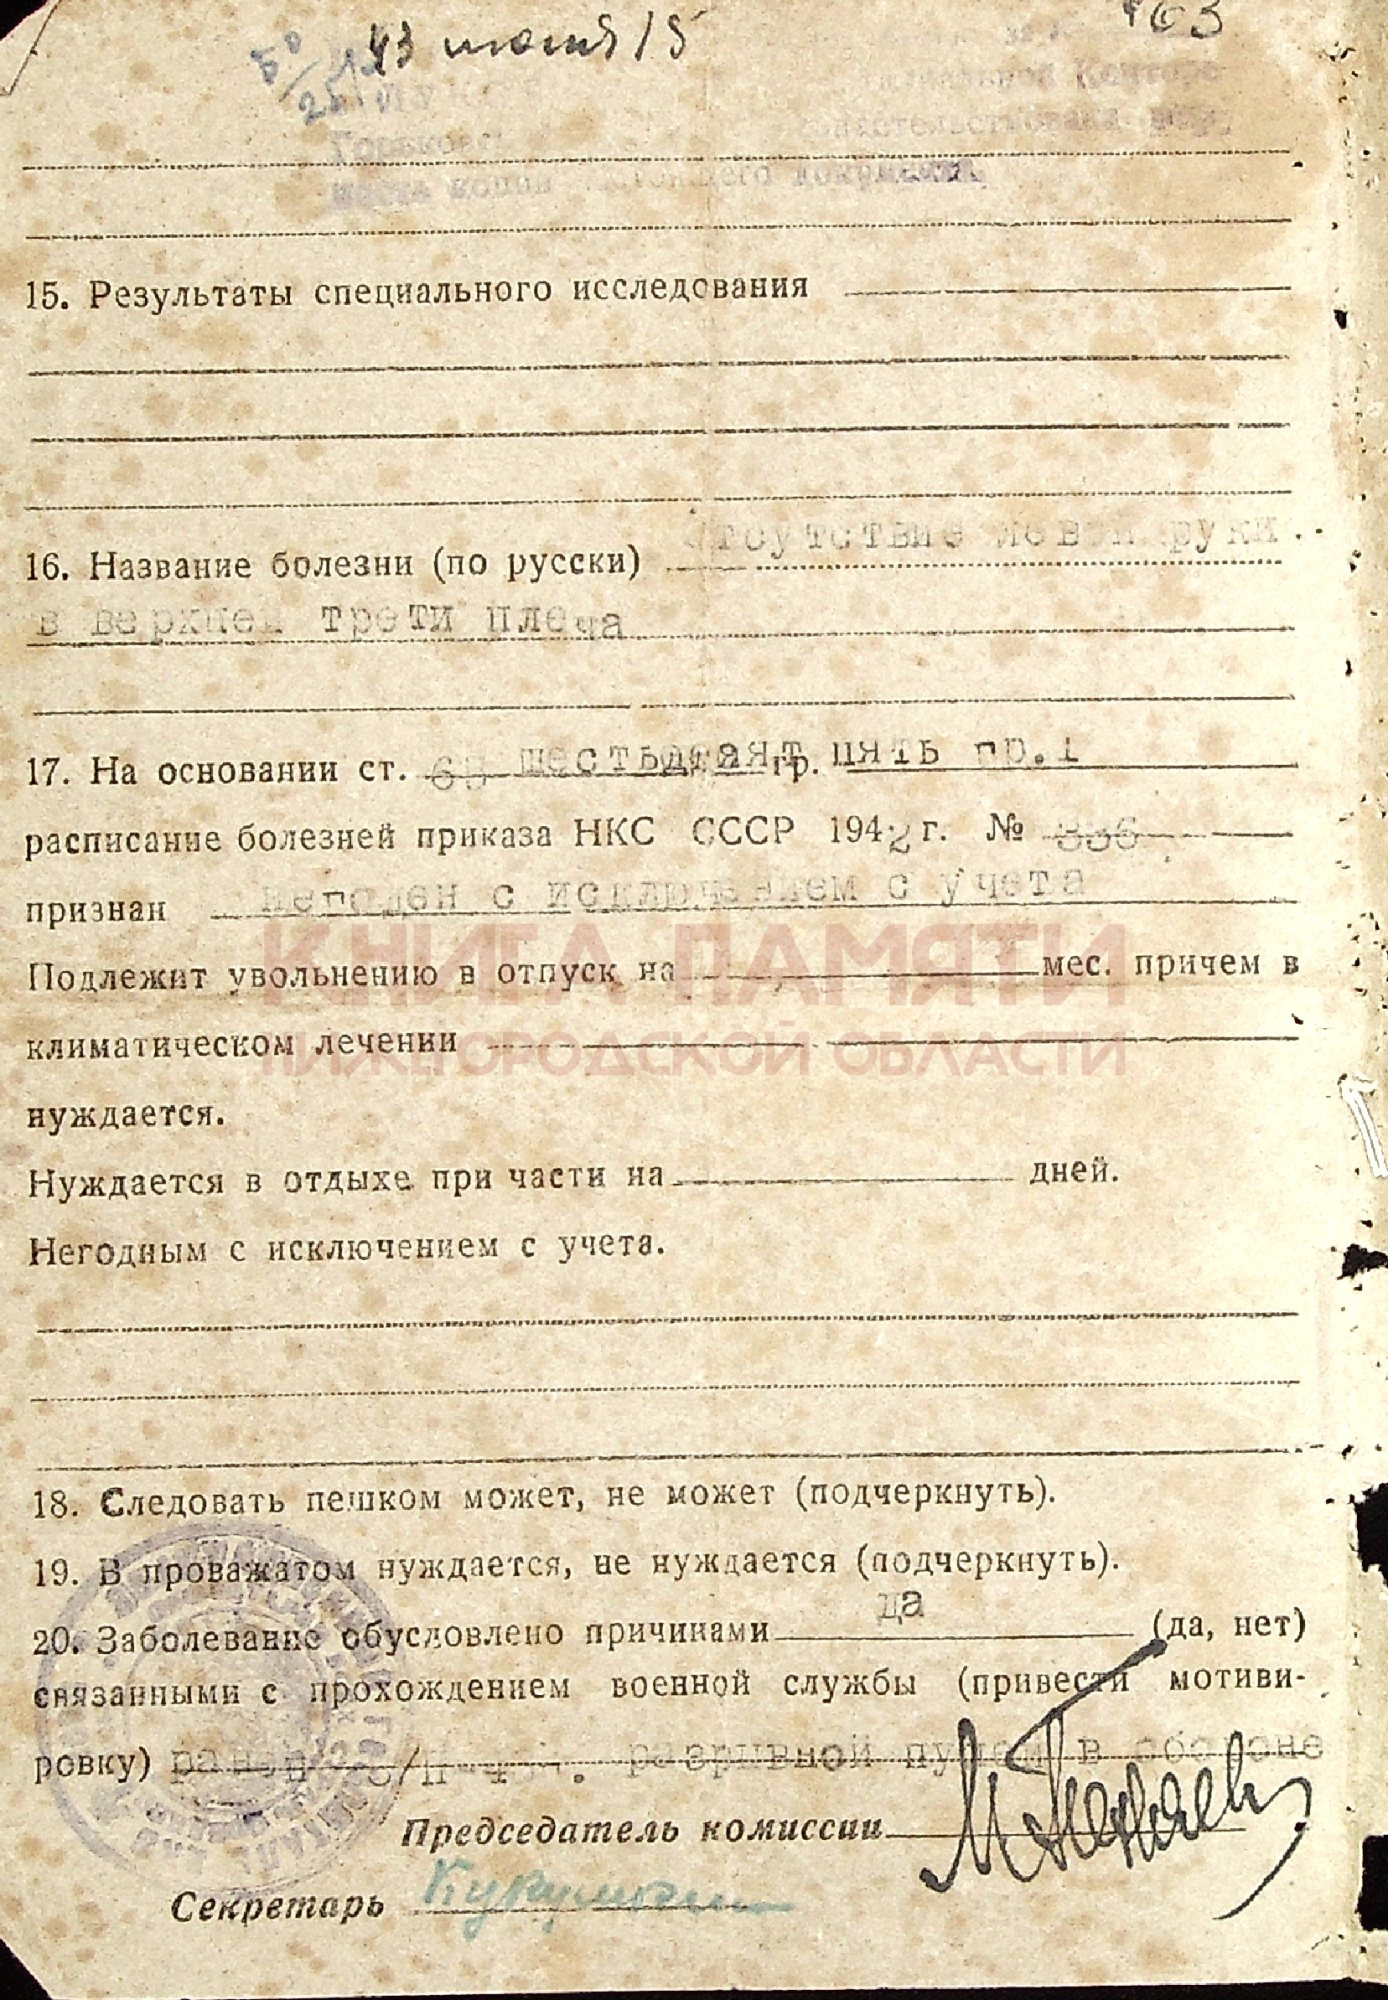 43 июня 15
63
15. Результаты специального исследования
16. Название болезни (по русски) Отсутствие левой руки
в верхней трети плеча
17. На основании ст. 65 шестьдесят пять гр. 1
расписание болезней приказа НКС СССР 1942 г. № 336
признан негоден с исключением с учета
КНИГА ПАМЯТИ
Подлежит увольнению в отпуск на мес. причем в
климатическом лечении
НИЖЕГОРОДСКОЙ ОБЛАСТИ
нуждается.
Нуждается в отдыхе при части на дней.
Негодным с исключением с учета.
18. Следовать пешком может, не может (подчеркнуть).
19. В проважатом нуждается, не нуждается (подчеркнуть).
20. Заболевание обусловлено причинами да (да, нет)
связанными с прохождением военной службы (привести мотиви-
ровку) ранен разрывной пулей в обороне
Председатель комиссии
Секретарь